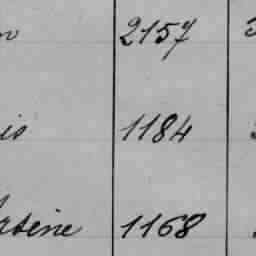 2157
is 1184
rsène 1168